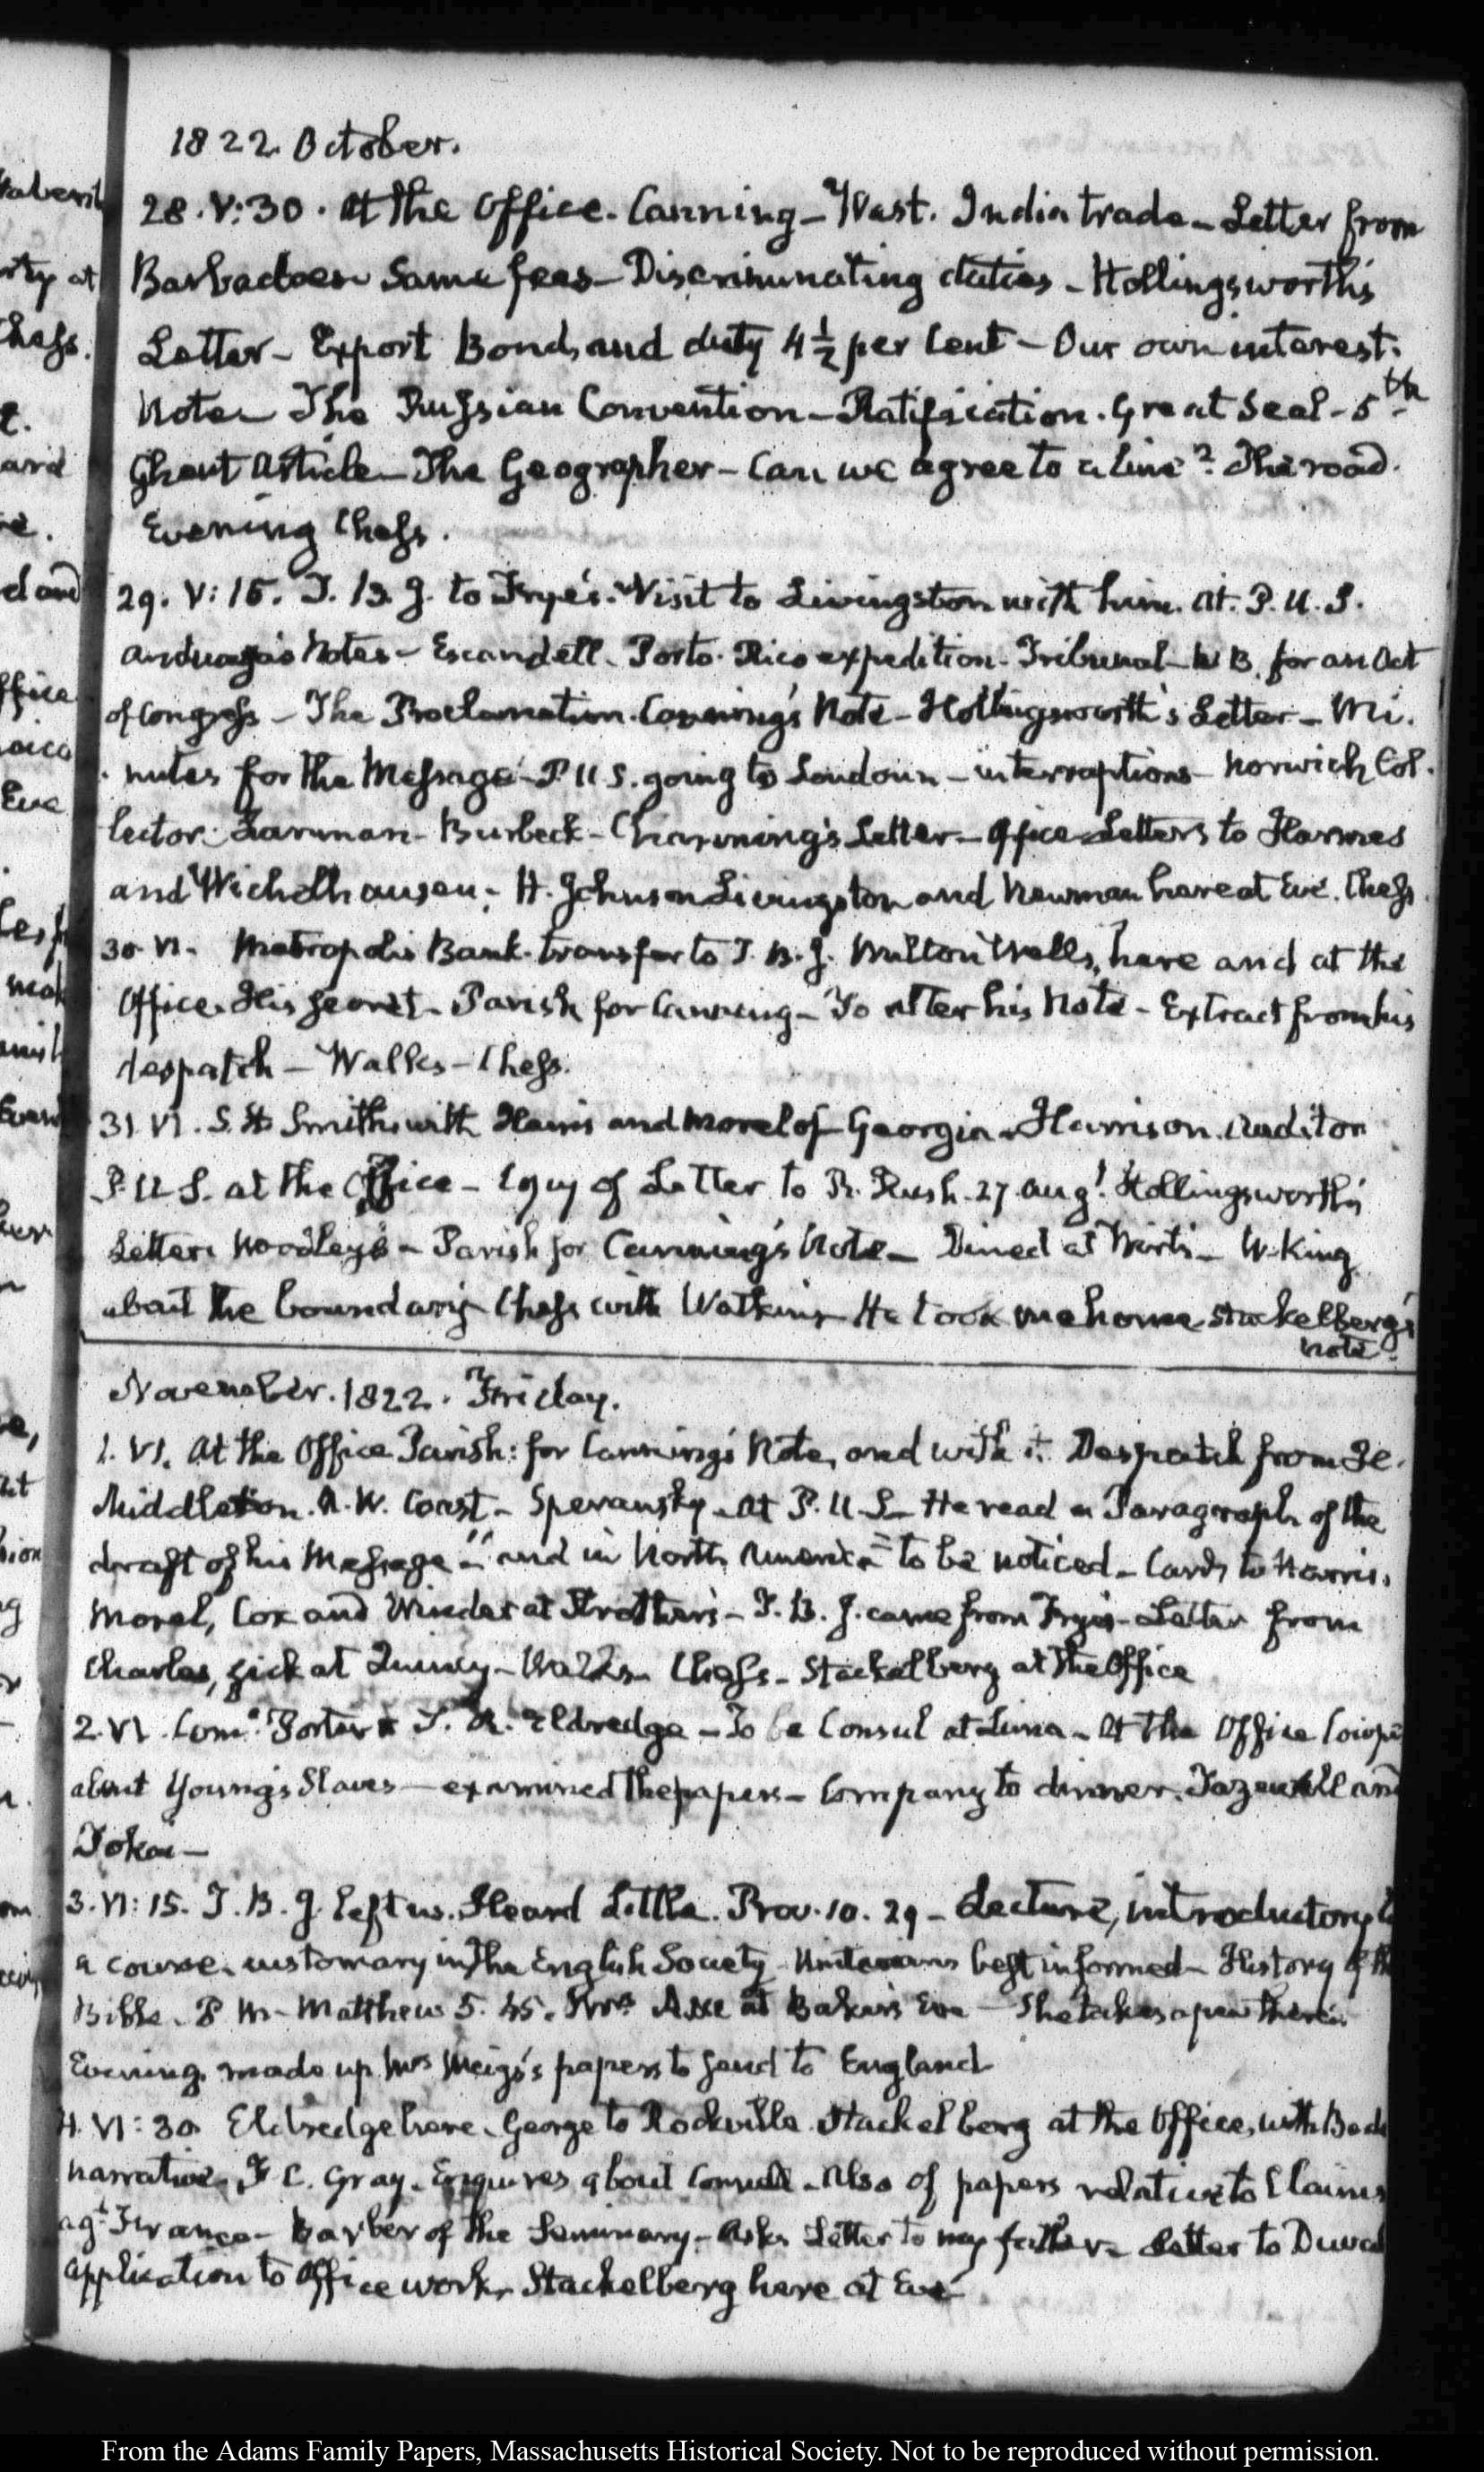 1822. October.
28. V:30. At the Office. Canning – West. India trade – Letter from
Barbadoes same fees – Discriminating duties – Hollingsworth's
Letter – Export Bond, and duty 4½ per Cent – Our own interest.
Note – The Russian Convention – Ratification. Great Seal – 5th
Ghent Article – The Geographer – Can we agree to a line? The road.
Evening Chess.
29. V:15. T. B. J. to Frye's. Visit to Livingston with him. At P. U. S.
Anduaga's Notes – Escandell. Porto Rico expedition. Tribunal – N B. for an Act
of Congress – The Proclamation. Canning's Note – Hollingsworth's Letter – Mi-
nutes for the Message – P U S. going to Loudoun – interruptions – Norwich Col-
lector. Lanman – Burbeck – Channing's Letter – Office Letters to Harmes
and Wichelhausen. H. Johnson Livingston and Newman here at Eve. Chess.
30. VI. Metropolis Bank. transfer to T. B. J. Milton Wells, here and at the
Office. His secret – Parish for Canning – To alter his Note – Extract from his
despatch – Walks – Chess.
31. VI. S. H. Smith with Harris and Morel of Georgia. Harrison. Auditor
P. U S. at the Office – Copy of Letter to R. Rush 27 Augt. Hollingsworth's
Letter. Woodley's – Parish for Canning's Note – Dined at Wirt's – W. King
about the boundary – Chess with Watkins – He took me home. Stackelberg's
Note.
November. 1822. Friday.
1. VI. At the Office Parish: for Canning's Note, and with it. Despatch from H.
Middleton. N. W. Coast – Speransky. At P. U S – He read a Paragraph of the
draft of his Message – "and in North America" to be noticed – Cards to Harris.
Morel, Cox and Winder at Strother's – T. B. J. came from Frye's – Letter from
Charles, sick at Quincy – Walks – Chess – Stackelberg at the Office
2. VI. Comr. Porter T. R. Eldredge – To be Consul at Lima – At the Office
about Young's Slaves – examined the papers – Company to dinner. Tazewell and
Tokai –
3. VI:15. T. B. J. left us. Heard Little. Prov. 10. 29 – Lecture, introductory to
a course. customary in the English Society. Unitarians best informed – History of the
Bible. P. M – Matthew 5. 45. Mrs at Baker's Eve – She takes a pew there.
Evening. made up Mrs Meigs's papers to send to England
4. VI:30. Eldredge here. George to Rockville. Stackelberg at the Office, with
narrative. F C. Gray. Enquires about Consuls. Also of papers relative to Claims
agt. France – Barber of the Seminary – Asks Letter to my father – Letter to Duval
Application to Office work. Stackelberg here at Eve
From the Adams Family Papers, Massachusetts Historical Society. Not to be reproduced without permission.